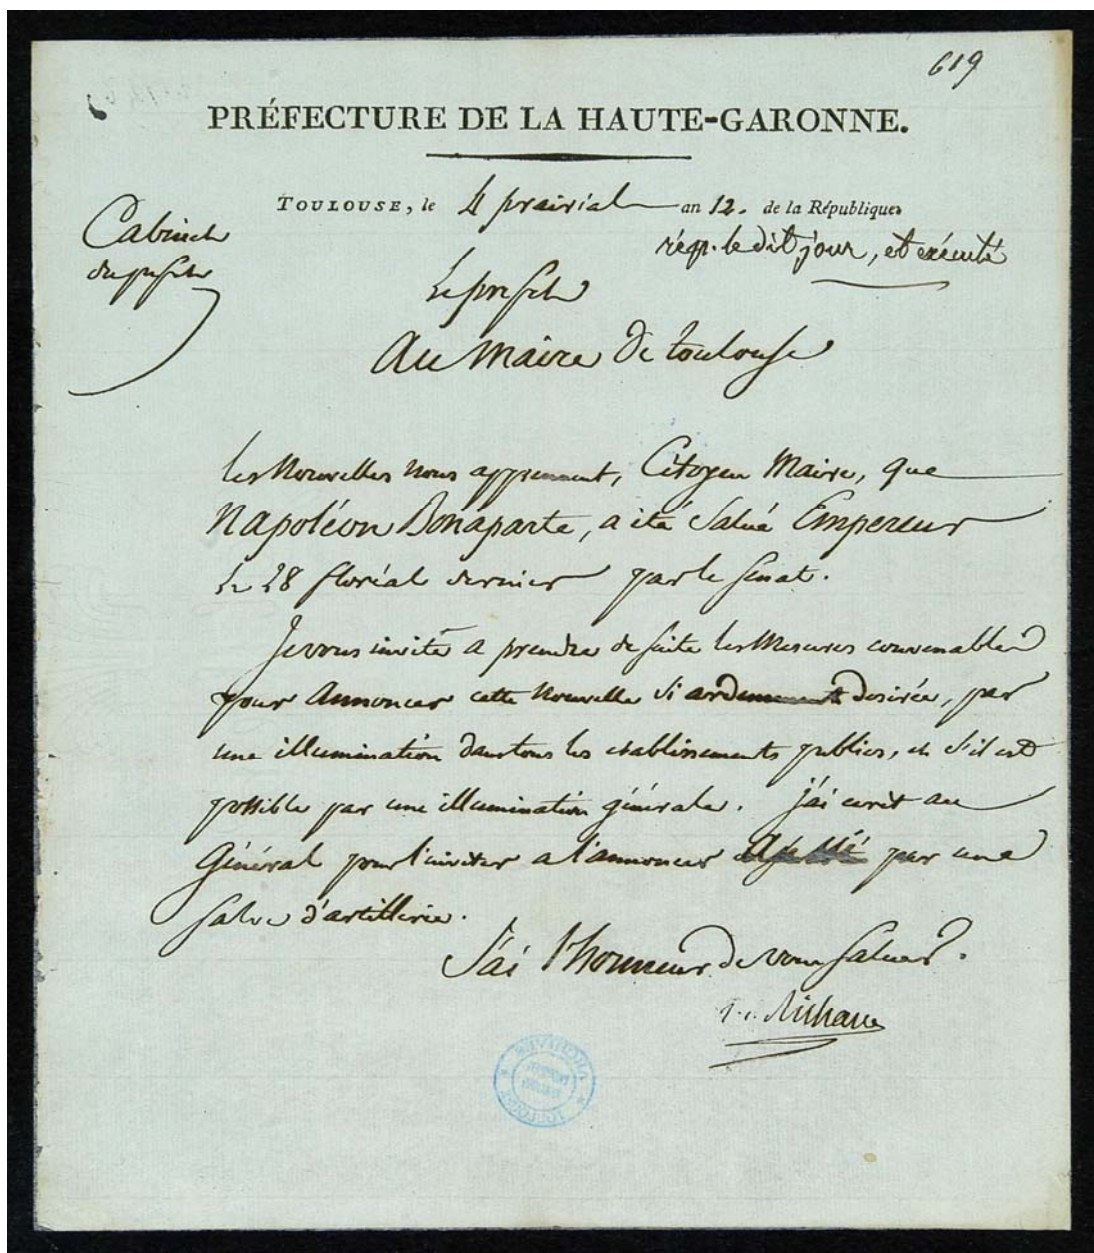 619
PRÉFECTURE DE LA HAUTE-GARONNE.
TOULOUSE, le 4 prairial an 12. de la République
Cabinet
du prefet
rép. le dit jour, et exécuté
Le prefet
Au Maire de toulouse
les Nouvelles nous apprennent, Citoyen Maire, que
Napoléon Bonaparte, a été Salué Empereur
Le 28 floréal dernier par le Senat.
Je vous invite a prendre de suite les Mesures convenables
pour Annoncer cette Nouvelle si ardemment desirée, par
une illumination dans tous les etablissements publics, et s'il est
possible par une illumination générale. j'ai ecrit au
Général pour l'inviter a l'annoncer par une
salve d'artillerie.
J'ai l'honneur de vous saluer.
Richard